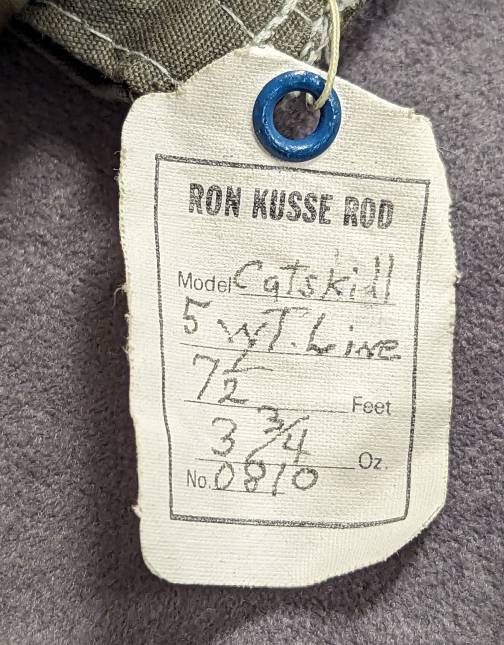 RON KUSSE ROD
Model Catskill
5 WT. Line
7 1/2 Feet
3 3/4 Oz.
No. 0810